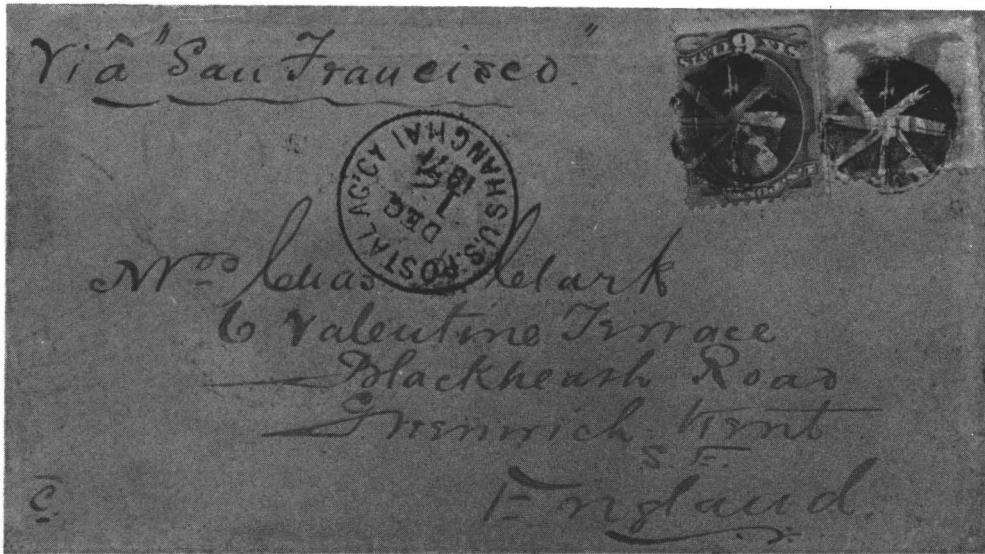 Via "San Francisco"
6
SIX CENTS
U.S. POSTAL AG'CY SHANGHAI
DEC
1
Mrs Chas Clark
6 Valentine Terrace
Blackheath Road
Greenwich. Kent
S. E.
England.
C.